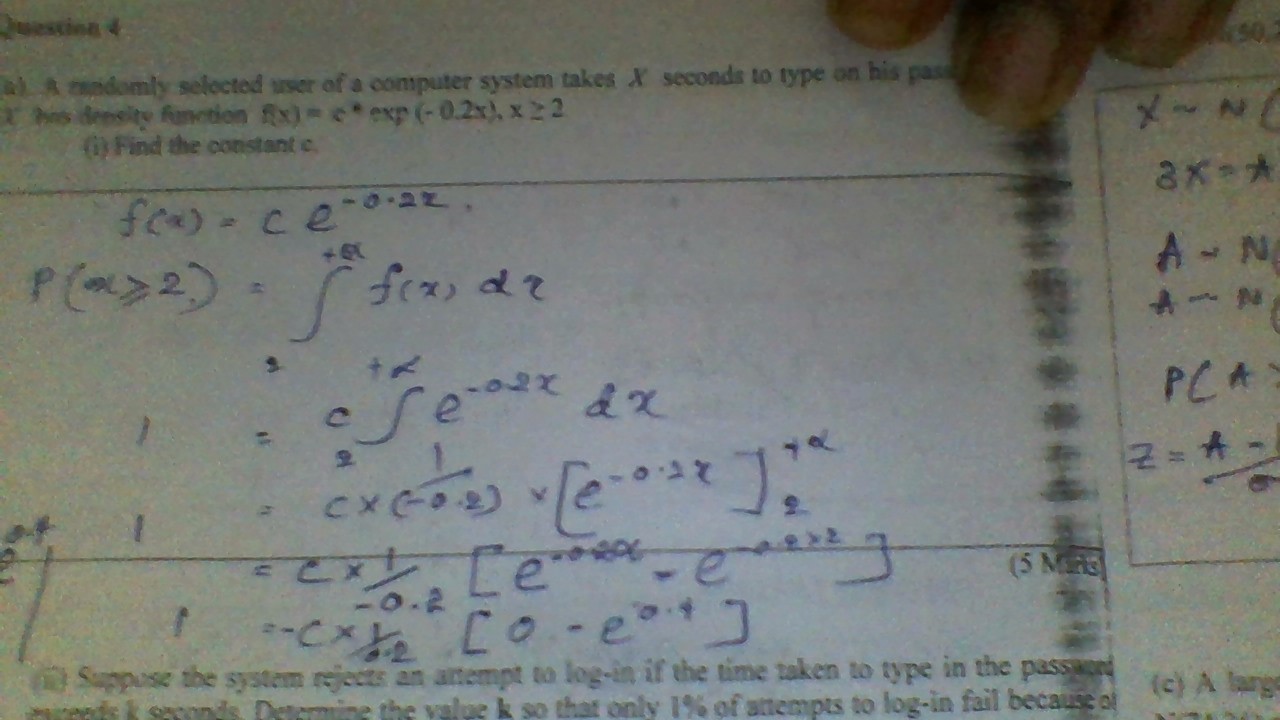 Question 4
(a) A randomly selected user of a computer system takes X seconds to type on his pass
X has density function f(x) = c * exp (- 0.2x), x ≥ 2
(i) Find the constant c.
f(x) = c e^-0.2x.
P(x≥2) = ∫ +α 2 f(x) dx
1 = c ∫ +α 2 e^-0.2x dx
1 = c x 1/(-0.2) x [e^-0.2x] +α 2
= c x 1/-0.2 [e^-0.2α - e^-0.2x2]
(5 Marks)
1 = -c x 1/0.2 [0 - e^0.4]
(ii) Suppose the system rejects an attempt to log-in if the time taken to type in the password
exceeds k seconds. Determine the value k so that only 1% of attempts to log-in fail because of
X ~ N(
3X = A
A ~ N(
A ~ N(
P(A >
Z = A -
(c) A large